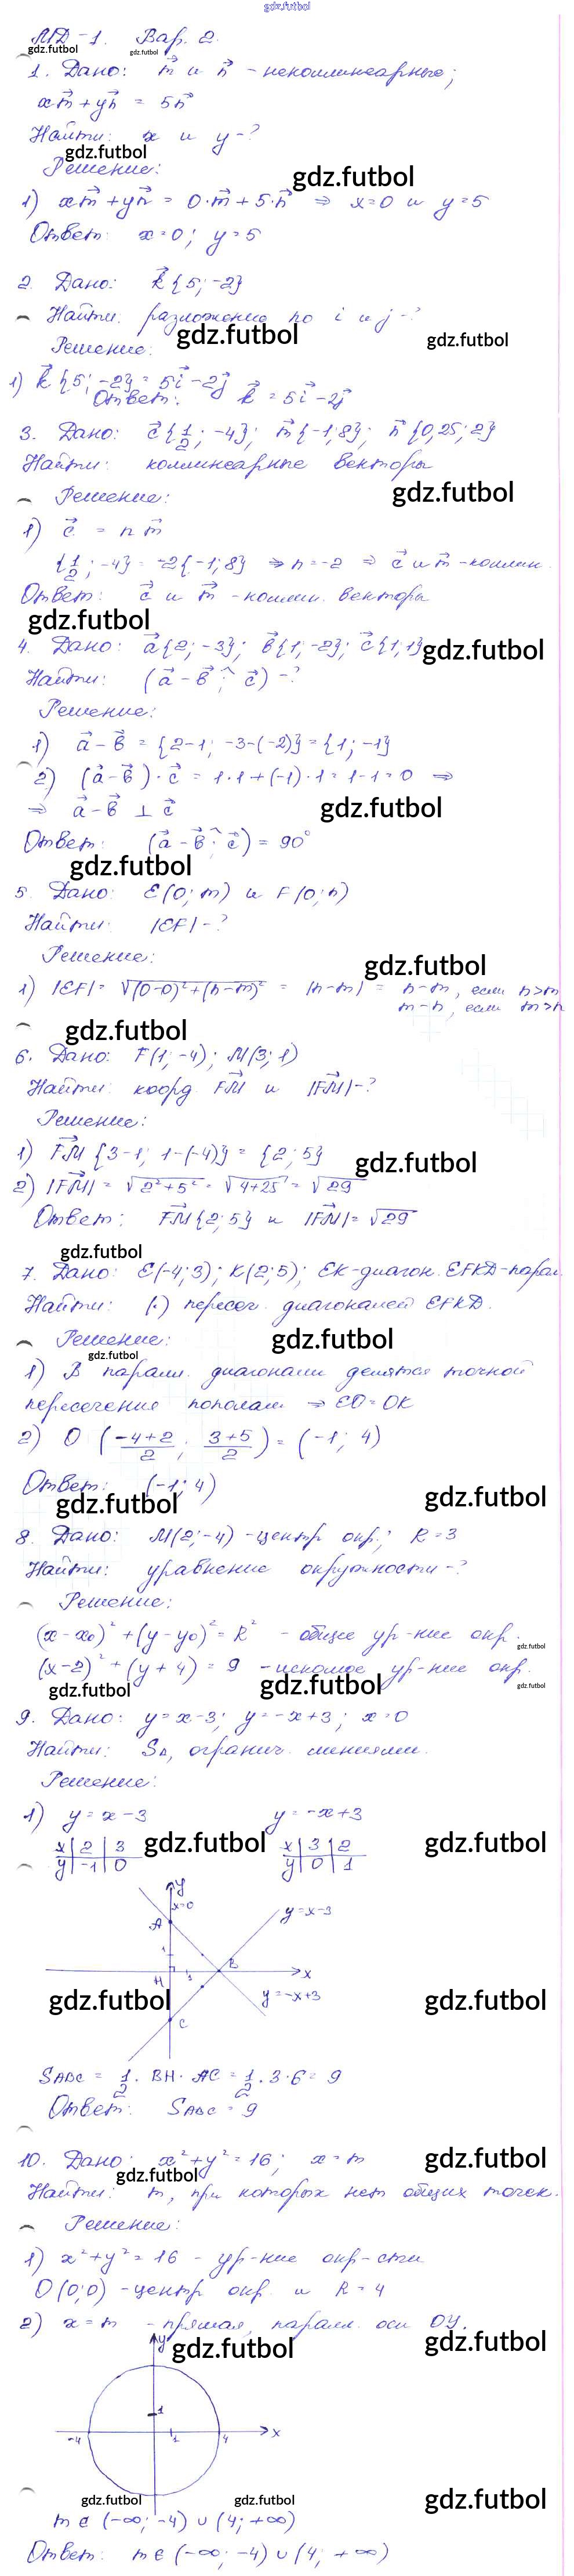 gdz.futbol
МД-1. Вар. 2.
gdz.futbol gdz.futbol
1. Дано: m⃗ и n⃗ - неколлинеарные;
xm⃗ + yn⃗ = 5n⃗
Найти: x и y - ?
gdz.futbol
Решение: gdz.futbol
1) xm⃗ + yn⃗ = 0·m⃗ + 5·n⃗ ⇒ x=0 и y=5
Ответ: x=0; y=5
2. Дано: k⃗{5; -2}
Найти: разложение по i и j - ?
gdz.futbol gdz.futbol
Решение:
1) k⃗{5; -2} = 5i⃗ - 2j⃗
Ответ: k⃗ = 5i⃗ - 2j⃗
3. Дано: c⃗{1/2; -4}; m⃗{-1; 8}; n⃗{0,25; 2}
Найти: коллинеарные векторы
Решение: gdz.futbol
1) c⃗ = n m⃗
{1/2; -4} = -2{-1; 8} ⇒ n = -2 ⇒ c⃗ и m⃗ - коллин.
Ответ: c⃗ и m⃗ - коллин. векторы
gdz.futbol
4. Дано: a⃗{2; -3}; b⃗{1; -2}; c⃗{1; 1} gdz.futbol
Найти: (a⃗ - b⃗ ^ c⃗) - ?
Решение:
1) a⃗ - b⃗ = {2-1; -3-(-2)} = {1; -1}
2) (a⃗ - b⃗)·c⃗ = 1·1 + (-1)·1 = 1-1 = 0 ⇒
⇒ a⃗ - b⃗ ⊥ c⃗ gdz.futbol
Ответ: (a⃗ - b⃗ ^ c⃗) = 90°
gdz.futbol
5. Дано: E(0; m) и F(0; n)
Найти: |EF| - ?
Решение: gdz.futbol
1) |EF| = √((0-0)²+(n-m)²) = |n-m| = n-m, если n>m
m-n, если m>n
gdz.futbol
6. Дано: F(1; -4); M(3; 1)
Найти: коорд. FM⃗ и |FM⃗| - ?
Решение:
1) FM⃗ {3-1; 1-(-4)} = {2; 5} gdz.futbol
2) |FM⃗| = √(2²+5²) = √(4+25) = √29
Ответ: FM⃗{2; 5} и |FM⃗| = √29
gdz.futbol
7. Дано: E(-4; 3); K(2; 5); EK-диагон. EFKD-парал.
Найти: (·) пересеч. диагоналей EFKD.
Решение: gdz.futbol
gdz.futbol
1) В паралл. диагонали делятся точкой
пересечения пополам ⇒ EO = OK
2) O ((-4+2)/2; (3+5)/2) = (-1; 4)
Ответ: (-1; 4)
gdz.futbol gdz.futbol
8. Дано: M(2; -4) - центр окр.; R=3
Найти: уравнение окружности - ?
Решение:
(x-x₀)² + (y-y₀)² = R² - общее ур-ние окр.
gdz.futbol
(x-2)² + (y+4) = 9 - искомое ур-ние окр.
gdz.futbol gdz.futbol gdz.futbol
9. Дано: y = x-3; y = -x+3; x=0
Найти: S△, огранич. линиями.
Решение:
1) y = x-3 y = -x+3
x | 2 | 3 gdz.futbol x | 3 | 2 gdz.futbol
y | -1 | 0 y | 0 | 1
y
x=0
A y=x-3
1
B
H 1 x
gdz.futbol y=-x+3 gdz.futbol
C
SABC = 1/2 · BH · AC = 1/2 · 3·6 = 9
Ответ: SABC = 9
10. Дано: x²+y²=16; x=m gdz.futbol
gdz.futbol
Найти: m, при которых нет общих точек.
Решение:
1) x²+y²=16 - ур-ние окр-сти
O(0; 0) - центр окр. и R=4
2) x=m - прямая, паралл. оси OY.
y gdz.futbol gdz.futbol
1
-4 1 4 x
gdz.futbol gdz.futbol gdz.futbol
m ∈ (-∞; -4) ∪ (4; +∞)
Ответ: m ∈ (-∞; -4) ∪ (4; +∞)